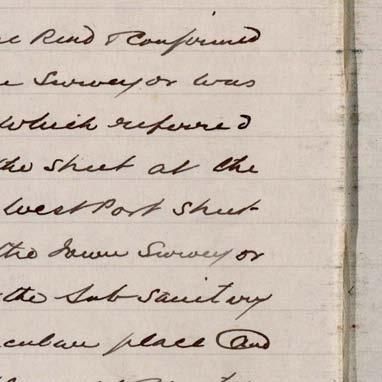 Read & confirmed
Surveyor was
which referred
the street at the
West Port Street
the Town Surveyor
the Sub Sanitary
place and